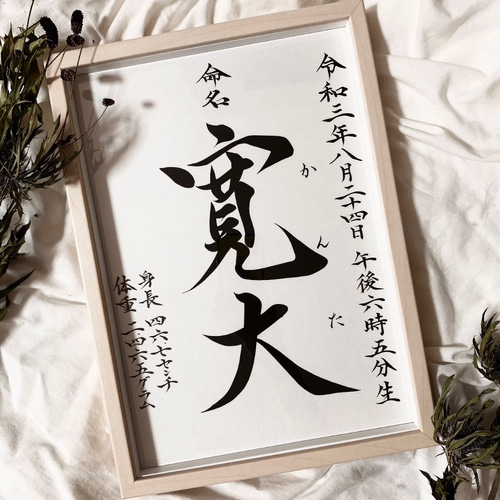 令和三年八月二十四日 午後六時五分生
命名
寛大
かんた
身長 四六七センチ
体重 二四六五グラム